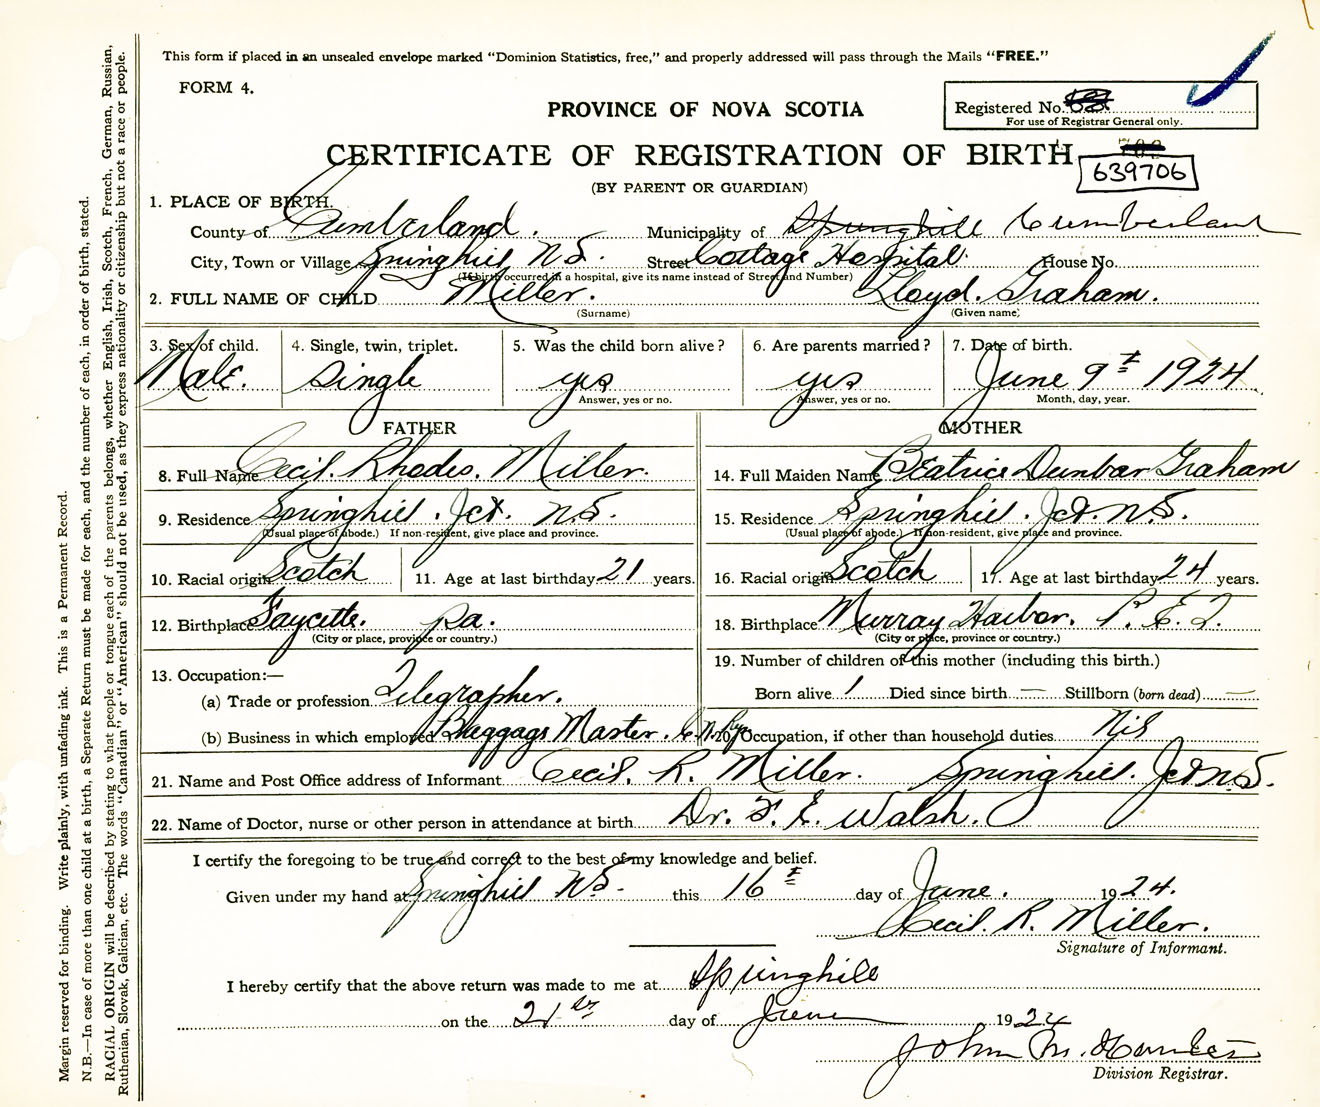 This form if placed in an unsealed envelope marked "Dominion Statistics, free," and properly addressed will pass through the Mails "FREE."
FORM 4.
PROVINCE OF NOVA SCOTIA
Registered No.
For use of Registrar General only.
CERTIFICATE OF REGISTRATION OF BIRTH
639706
(BY PARENT OR GUARDIAN)
1. PLACE OF BIRTH.
County of Cumberland. Municipality of Springhill Cumberland
City, Town or Village Springhill N.S. Street Cottage Hospital. House No.
(If birth occurred in a hospital, give its name instead of Street and Number)
2. FULL NAME OF CHILD Miller. Lloyd. Graham.
(Surname) (Given name)
3. Sex of child. 4. Single, twin, triplet. 5. Was the child born alive? 6. Are parents married? 7. Date of birth.
Male. Single yes yes June 9th 1924
Answer, yes or no. Answer, yes or no. Month, day, year.
FATHER MOTHER
8. Full Name Cecil. Rhodes. Miller. 14. Full Maiden Name Beatrice Dunbar Graham
9. Residence Springhill. Jct. N.S. 15. Residence Springhill. Jct. N.S.
(Usual place of abode.) If non-resident, give place and province. (Usual place of abode.) If non-resident, give place and province.
10. Racial origin Scotch 11. Age at last birthday 21 years. 16. Racial origin Scotch 17. Age at last birthday 24 years.
12. Birthplace Faycette. Pa. 18. Birthplace Murray Harbor. P. E. I.
(City or place, province or country.) (City or place, province or country.)
13. Occupation:— 19. Number of children of this mother (including this birth.)
(a) Trade or profession Telegrapher. Born alive 1 Died since birth — Stillborn (born dead) —
(b) Business in which employed Baggage Master. C.N.Ry. 20. Occupation, if other than household duties Nil
21. Name and Post Office address of Informant Cecil. R. Miller. Springhill. Jct N.S.
22. Name of Doctor, nurse or other person in attendance at birth Dr. F. E. Walsh.
I certify the foregoing to be true and correct to the best of my knowledge and belief.
Given under my hand at Springhill N.S. this 16th day of June. 1924.
Cecil. R. Miller.
Signature of Informant.
I hereby certify that the above return was made to me at Springhill
on the 21st day of June 1924
John M.
Division Registrar.
Margin reserved for binding. Write plainly, with unfading ink. This is a Permanent Record.
N.B.—In case of more than one child at a birth, a Separate Return must be made for each, and the number of each, in order of birth, stated.
RACIAL ORIGIN will be described by stating to what people or tongue each of the parents belongs, whether English, Irish, Scotch, French, German, Russian,
Ruthenian, Slovak, Galician, etc. The words "Canadian" or "American" should not be used, as they express nationality or citizenship but not a race or people.